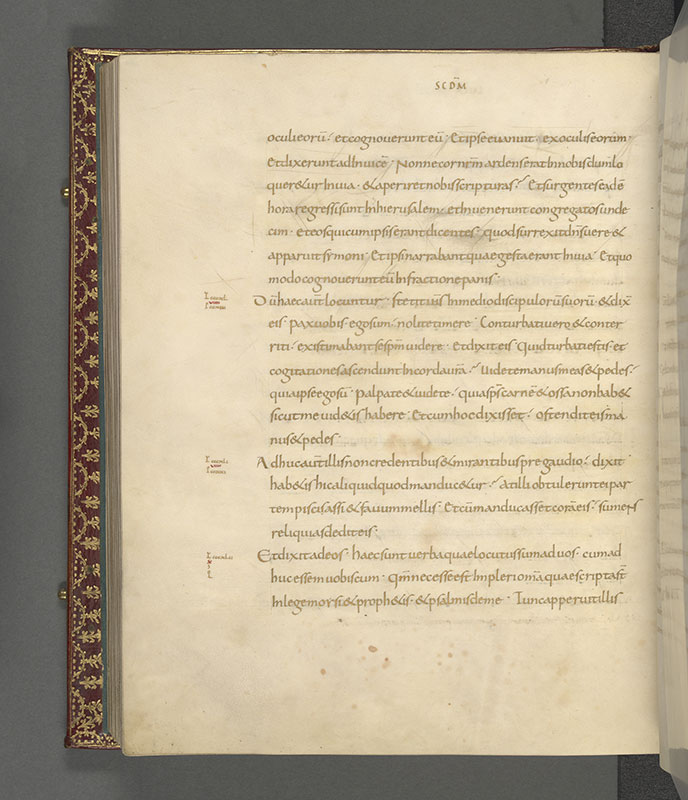 SCDM̄
oculi eorū · et cognoverunt eū · Et ipse evanuit · ex oculis eorum ·
Et dixerunt ad invicē · Nonne cor nr̄m ardens erat in nobis dum lo
quer&ur in via · & aperir& nobis scripturas · Et surgentes eadē
hora regressi sunt in hierusalem · et invenerunt congregatos unde
cim · et eos qui cum ipsis erant dicentes · quod surrexit dn̄s vere &
apparuit symoni · Et ipsi narrabant quae gesta erant in via · Et quo
modo cognoverunt eū in fractione panis ·
Dū haec aut̄ locuntur · stetit ih̄s in medio discipulorū suorū · & dix̄
eis · pax vobis · ego sum · nolite timere · Conturbati vero & conter
riti · existimabant se sp̄m videre · Et dixit eis · Quid turbati estis · et
cogitationes ascendunt in corda ur̄a · Videte manus meas & pedes ·
quia ipse ego sū · palpate & videte · quia sp̄s carnē & ossa non hab&
sicut me vid&is habere · Et cum hoc dixisset · ostendit eis ma
nus & pedes ·
Adhuc aut̄ illis non credentibus & mirantibus pre gaudio · dixit
hab&is hic aliquid quod manduc&ur · At illi obtulerunt ei par
tem piscis assi & favum mellis · Et cū manducasset corā eis · sumens
reliquias dedit eis ·
Et dixit ad eos · haec sunt verba quae locutus sum ad vos · cum ad
huc essem vobiscum · qm̄ necesse est impleri omā quae scripta st̄
in lege moysi & proph&is · & psalmis de me · Tunc apperuit illis